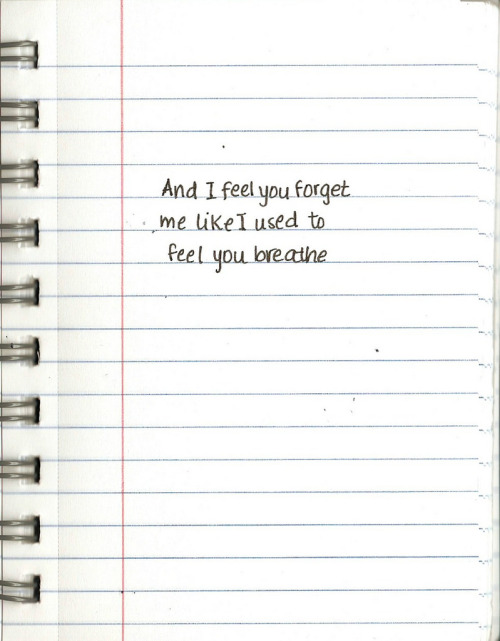 And I feel you forget
me like I used to
feel you breathe